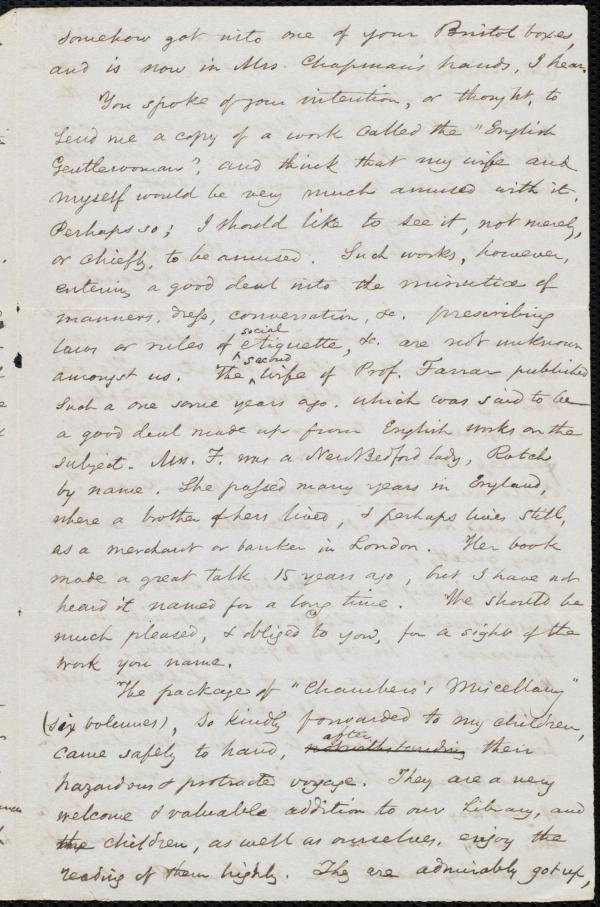 somehow got into one of your Bristol boxes,
and is now in Mrs. Chapman's hands, I hear.
You spoke of your intention, or thought, to
send me a copy of a work called the "English
Gentlewoman", and think that my wife and
myself would be very much amused with it.
Perhaps so; I should like to see it, not merely,
or chiefly, to be amused. Such works, however,
entering a good deal into the minutiæ of
manners, dress, conversation, &c. prescribing
laws or rules of social etiquette, &c. are not unknown
amongst us. The second wife of Prof. Farrar published
such a one some years ago, which was said to be
a good deal made up from English works on the
subject. Mrs. F. was a New Bedford lady, Rotch
by name. She passed many years in England,
where a brother of hers lived, & perhaps lives still,
as a merchant or banker in London. Her book
made a great talk 15 years ago, but I have not
heard it named for a long time. We should be
much pleased, & obliged to you, for a sight of the
work you name.
The package of "Chambers's Miscellany"
(six volumes), so kindly forwarded to my children,
came safely to hand, notwithstanding after their
hazardous & protracted voyage. They are a very
welcome & valuable addition to our Library, and
the children, as well as ourselves, enjoy the
reading of them highly. They are admirably got up,